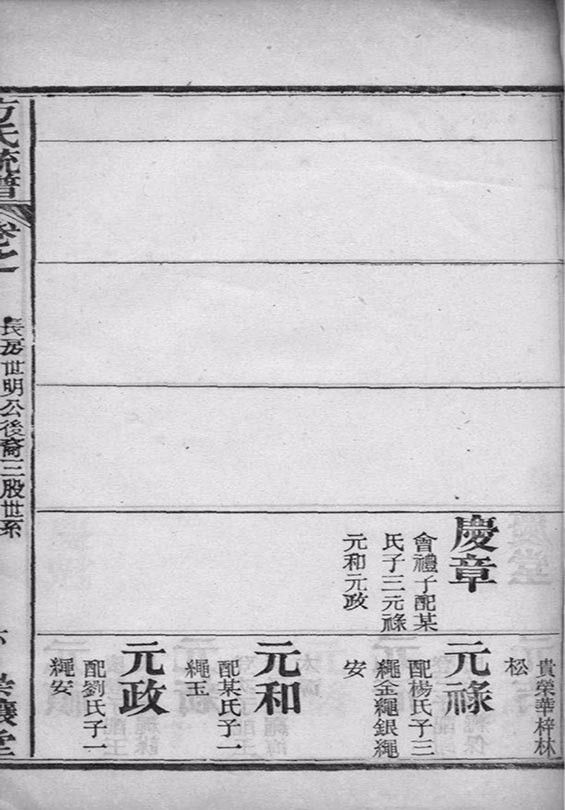 慶章
會禮子配某
氏子三元祿
元和元政
貴榮華梓林
松
元祿
配楊氏子三
繩金繩銀繩
安
元和
配某氏子一
繩玉
元政
配劉氏子一
繩安
方氏統譜
卷之一
長房世明公後裔三股世系
堂